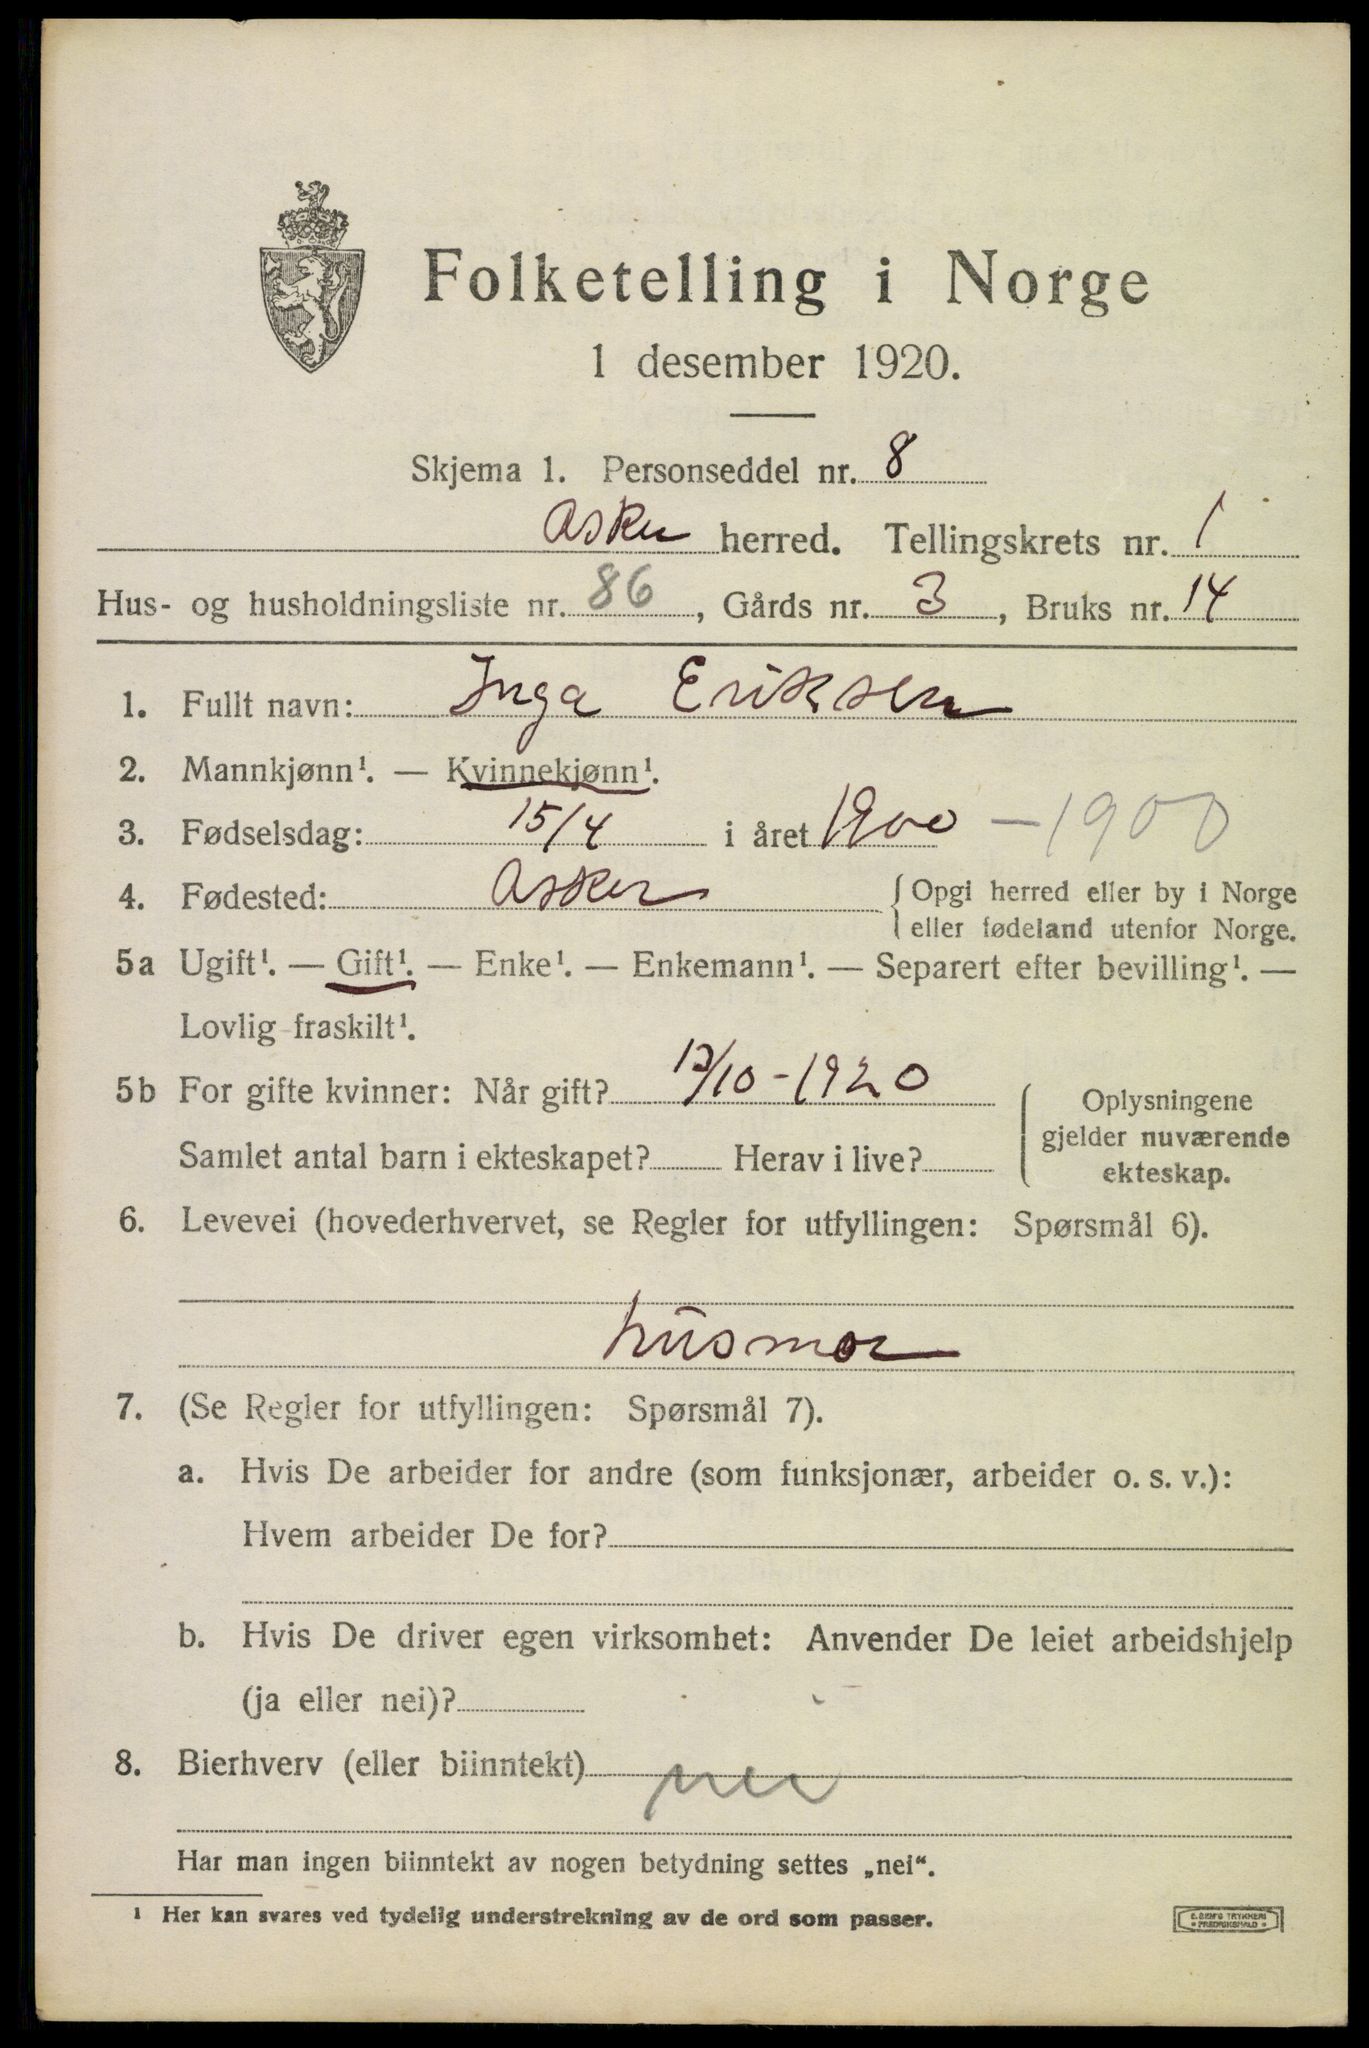 Folketelling i Norge
1 desember 1920.
Skjema 1. Personseddel nr. 8
Asker herred. Tellingskrets nr. 1
Hus- og husholdningsliste nr. 86, Gårds nr. 3, Bruks nr. 14
1. Fullt navn: Inga Eriksen
2. Mannkjønn¹. — Kvinnekjønn¹.
3. Fødselsdag: 15/4 i året 1900 — 1900
4. Fødested: Asker { Opgi herred eller by i Norge
eller fødeland utenfor Norge.
5a Ugift¹. — Gift¹. — Enke¹. — Enkemann¹. — Separert efter bevilling¹. —
Lovlig fraskilt¹.
5b For gifte kvinner: Når gift? /10-1920
Samlet antal barn i ekteskapet? Herav i live?
Oplysningene
gjelder nuværende
ekteskap.
6. Levevei (hovederhvervet, se Regler for utfyllingen: Spørsmål 6).
husmor
7. (Se Regler for utfyllingen: Spørsmål 7).
a. Hvis De arbeider for andre (som funksjonær, arbeider o. s. v.):
Hvem arbeider De for?
b. Hvis De driver egen virksomhet: Anvender De leiet arbeidshjelp
(ja eller nei)?
8. Bierhverv (eller biinntekt) nei
Har man ingen biinntekt av nogen betydning settes „nei“.
¹ Her kan svares ved tydelig understrekning av de ord som passer.
E. SEM'S TRYKKERI
• FREDRIKSHALD •